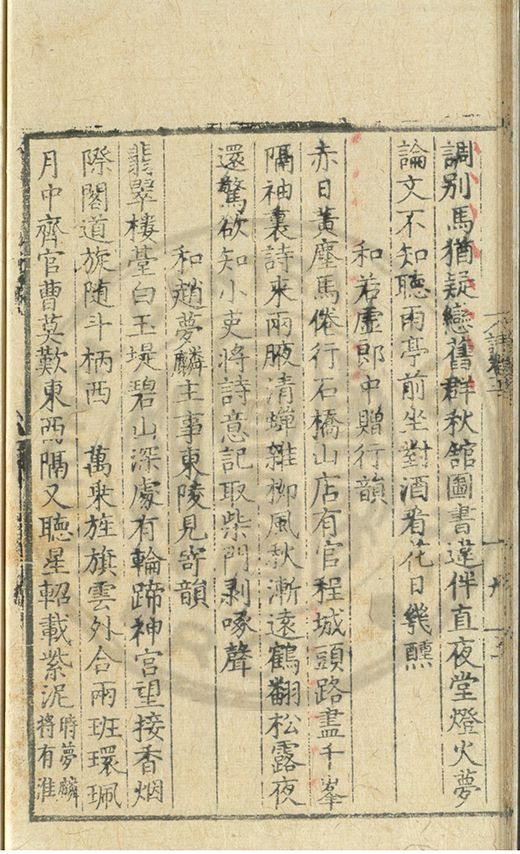 調別馬猶疑戀舊群秋館圖書違伴直夜堂燈火夢
論文不知聽雨亭前坐對酒看花日幾醺
和若虛郎中贈行韻
赤日黃塵馬倦行石橋山店有官程城頭路盡千峯
隔袖裏詩來兩腋清蟬雜柳風秋漸遠鶴翻松露夜
還驚欲知小吏將詩意記取柴門剥啄聲
和趙夢麟主事東陵見寄韻
翡翠樓臺白玉堤碧山深處有輪蹄神宮望接香烟
際閣道旋随斗柄西 萬乗旌旗雲外合兩班環珮
月中齊官曹莫歎東西隔又聽星軺載紫泥時夢麟將有淮